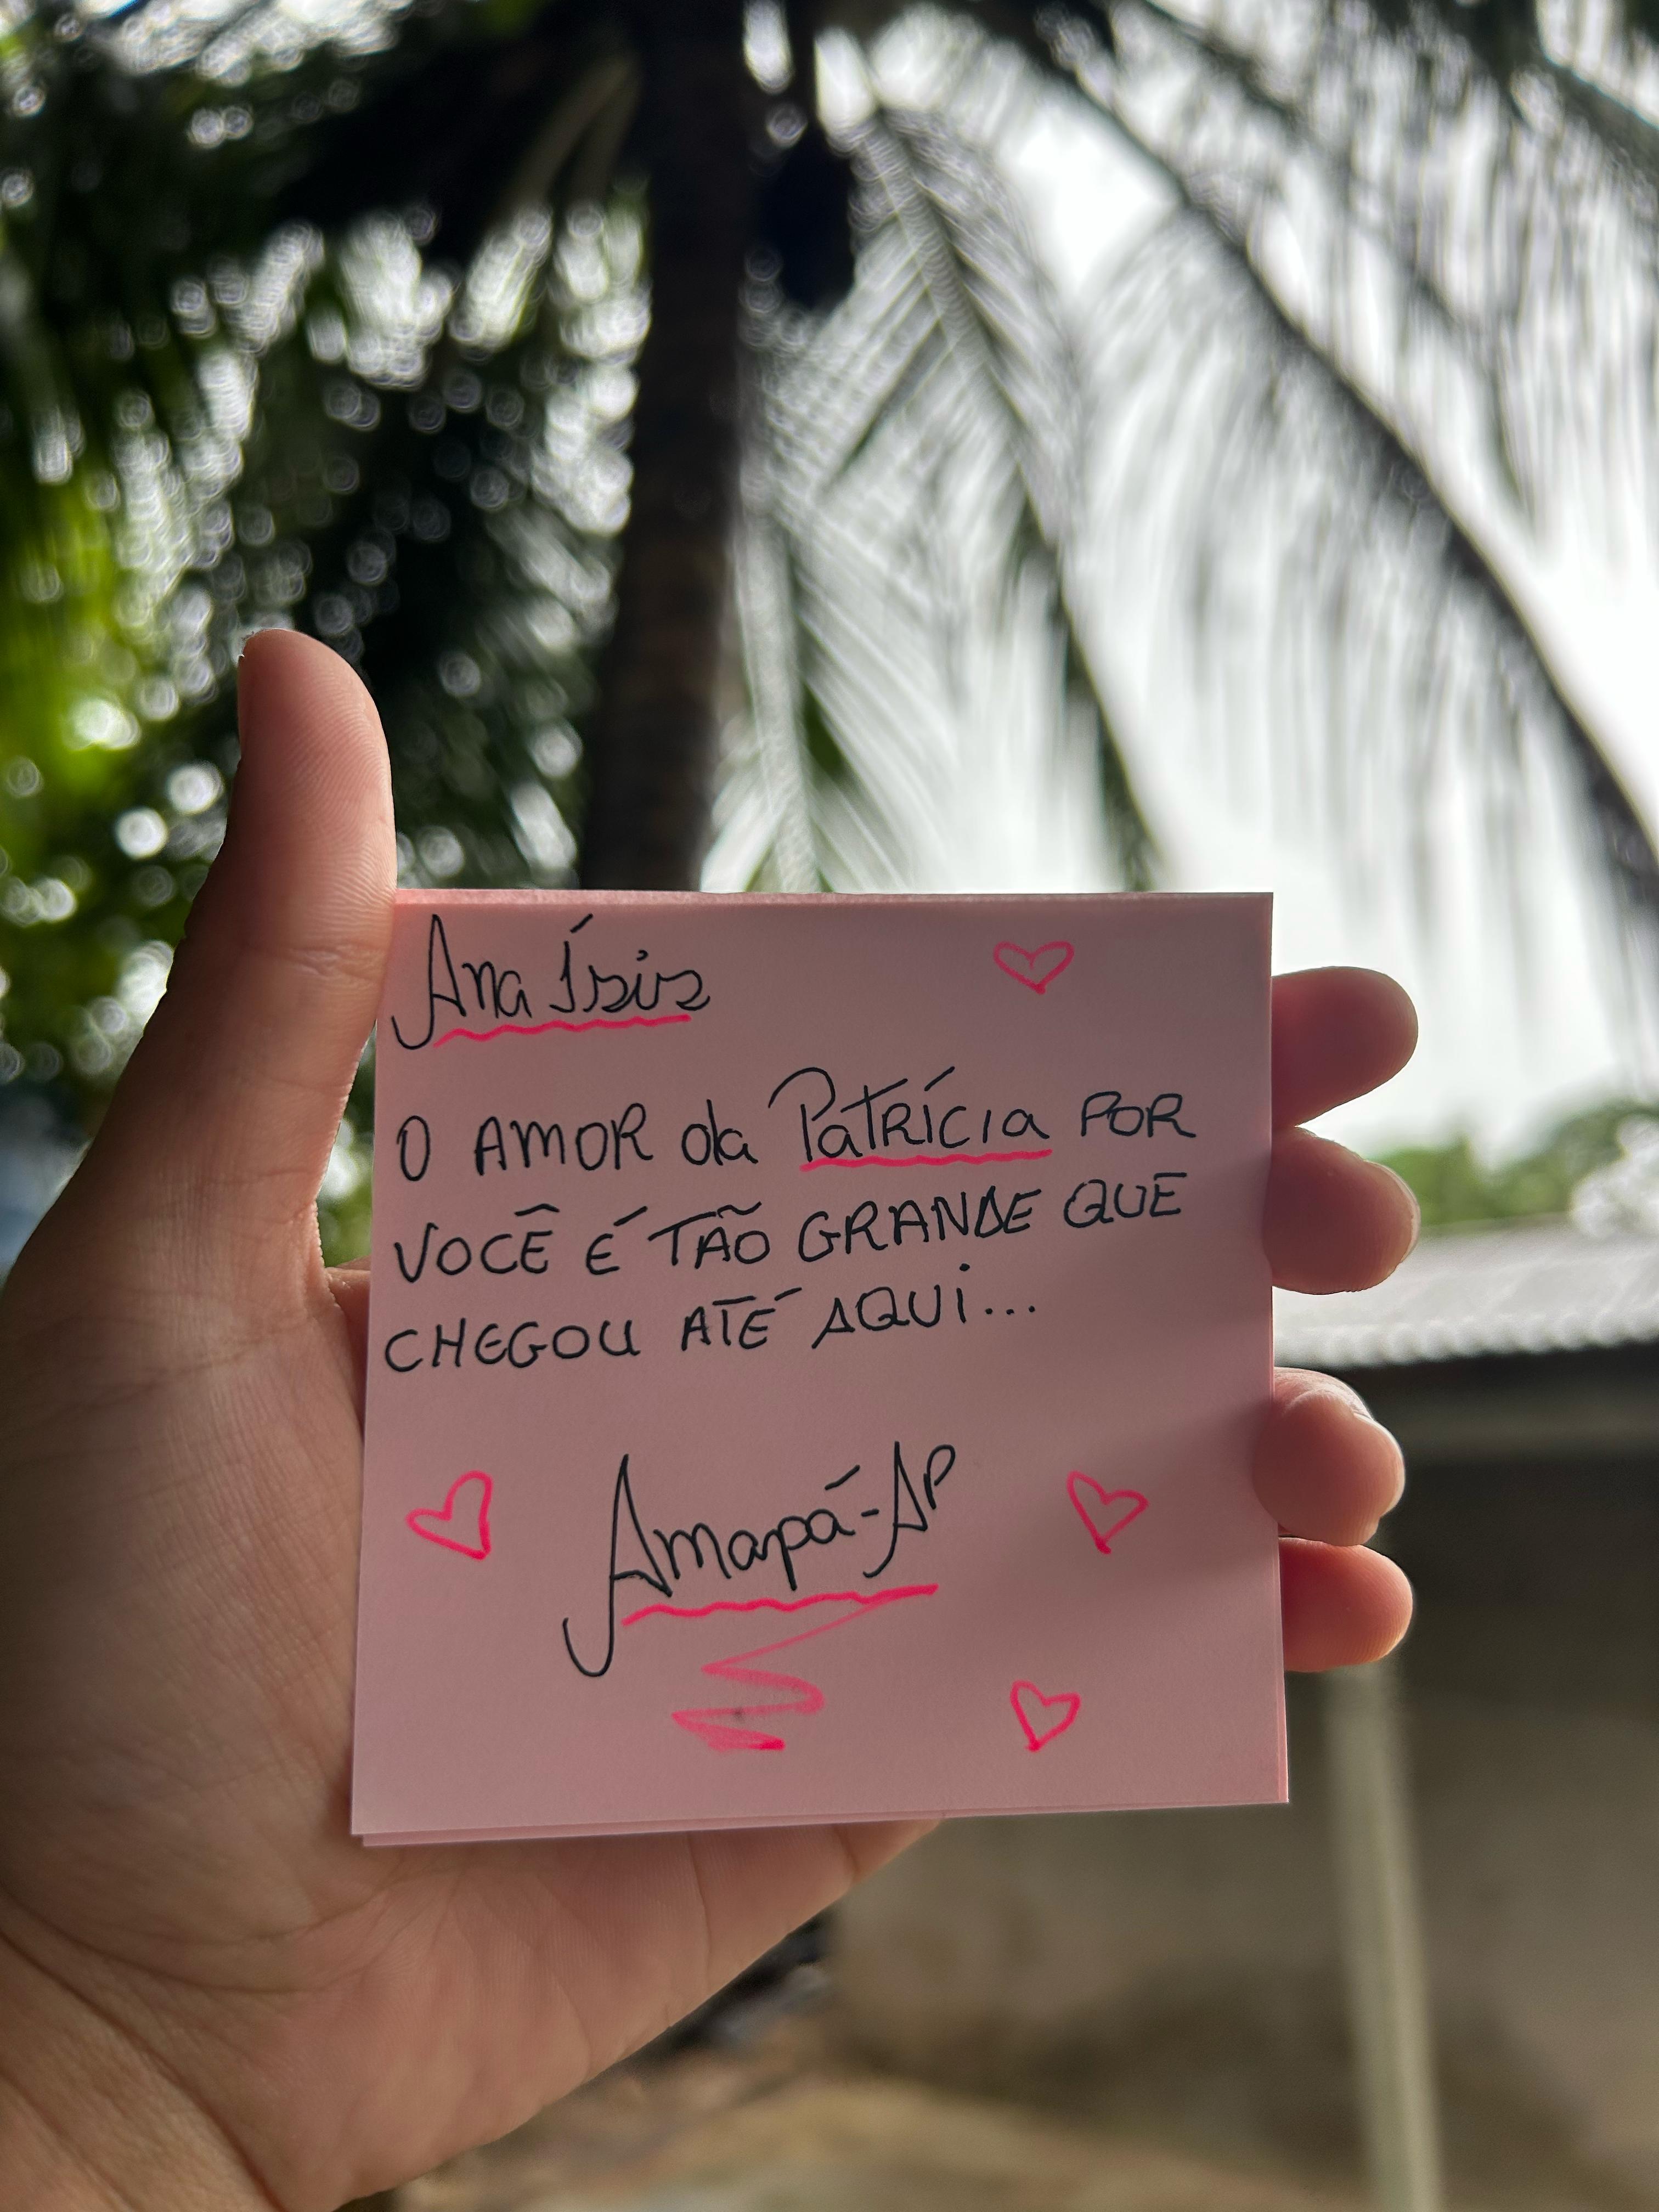 Ana Ísis
O AMOR da PatRÍcia POR
VOCÊ É TÃO GRANDE QUE
CHEGOU ATÉ AQUi...
Amapá-AP